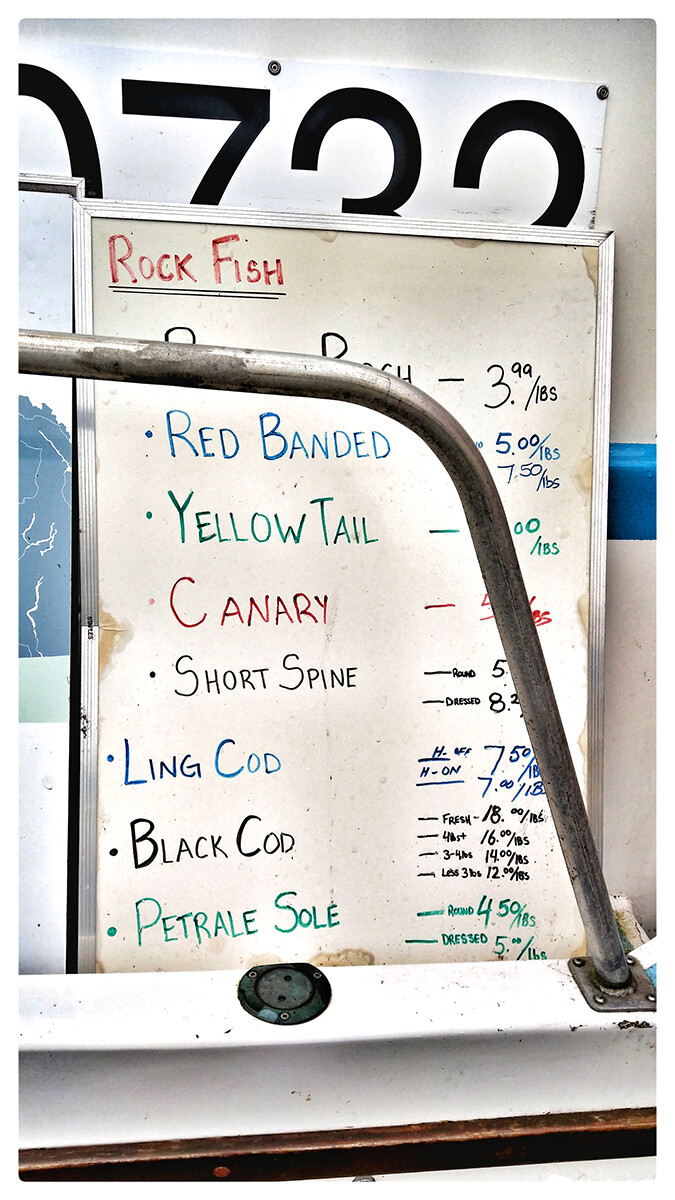 0732
ROCK FISH
— 3.99/lbs
• RED BANDED 5.00/lbs
7.50/lbs
• YELLOW TAIL — 00/lbs
• CANARY —
• SHORT SPINE — ROUND 5.
— DRESSED 8.2
• LING COD H-OFF 7.50/lb
H-ON 7.00/lB
• BLACK COD — FRESH - 18.00/lbs
— 4lbs+ 16.00/lbs
— 3-4lbs 14.00/lbs
— LESS 3lbs 12.00/lbs
• PETRALE SOLE — ROUND 4.50/lbs
— DRESSED 5.00/lbs
STAPLES